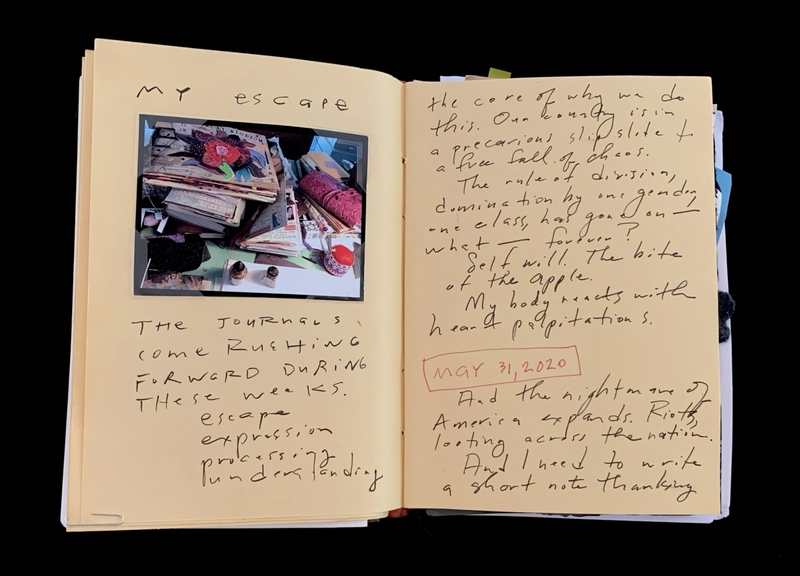 MY escape
THE JOURNALS
come RUSHING
FORWARD DURING
THese weeks.
escape
expression
processing
understanding
the core of why we do
this. Our country is in
a precarious slip slite to
a free fall of chaos.
The rule of division,
domination by one gender,
one class, has gone on —
what — forever?
Self will. The bite
of the apple.
My body reacts with
heart palpitations.
MAY 31, 2020
And the nightmare of
America expands. Riots,
looting across the nation.
And I need to write
a short note thanking